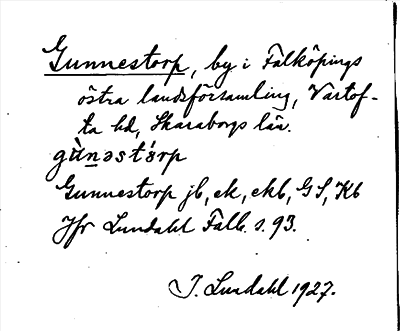 Gunnestorp, by i Falköpings
östra landsförsamling, Vartof-
ta hd, Skaraborgs län.
gùnəstórp
Gunnestorp jb, ek, ekb, GS, Kb
Jfr Lundahl Falb. s. 93.
I. Lundahl 1927.